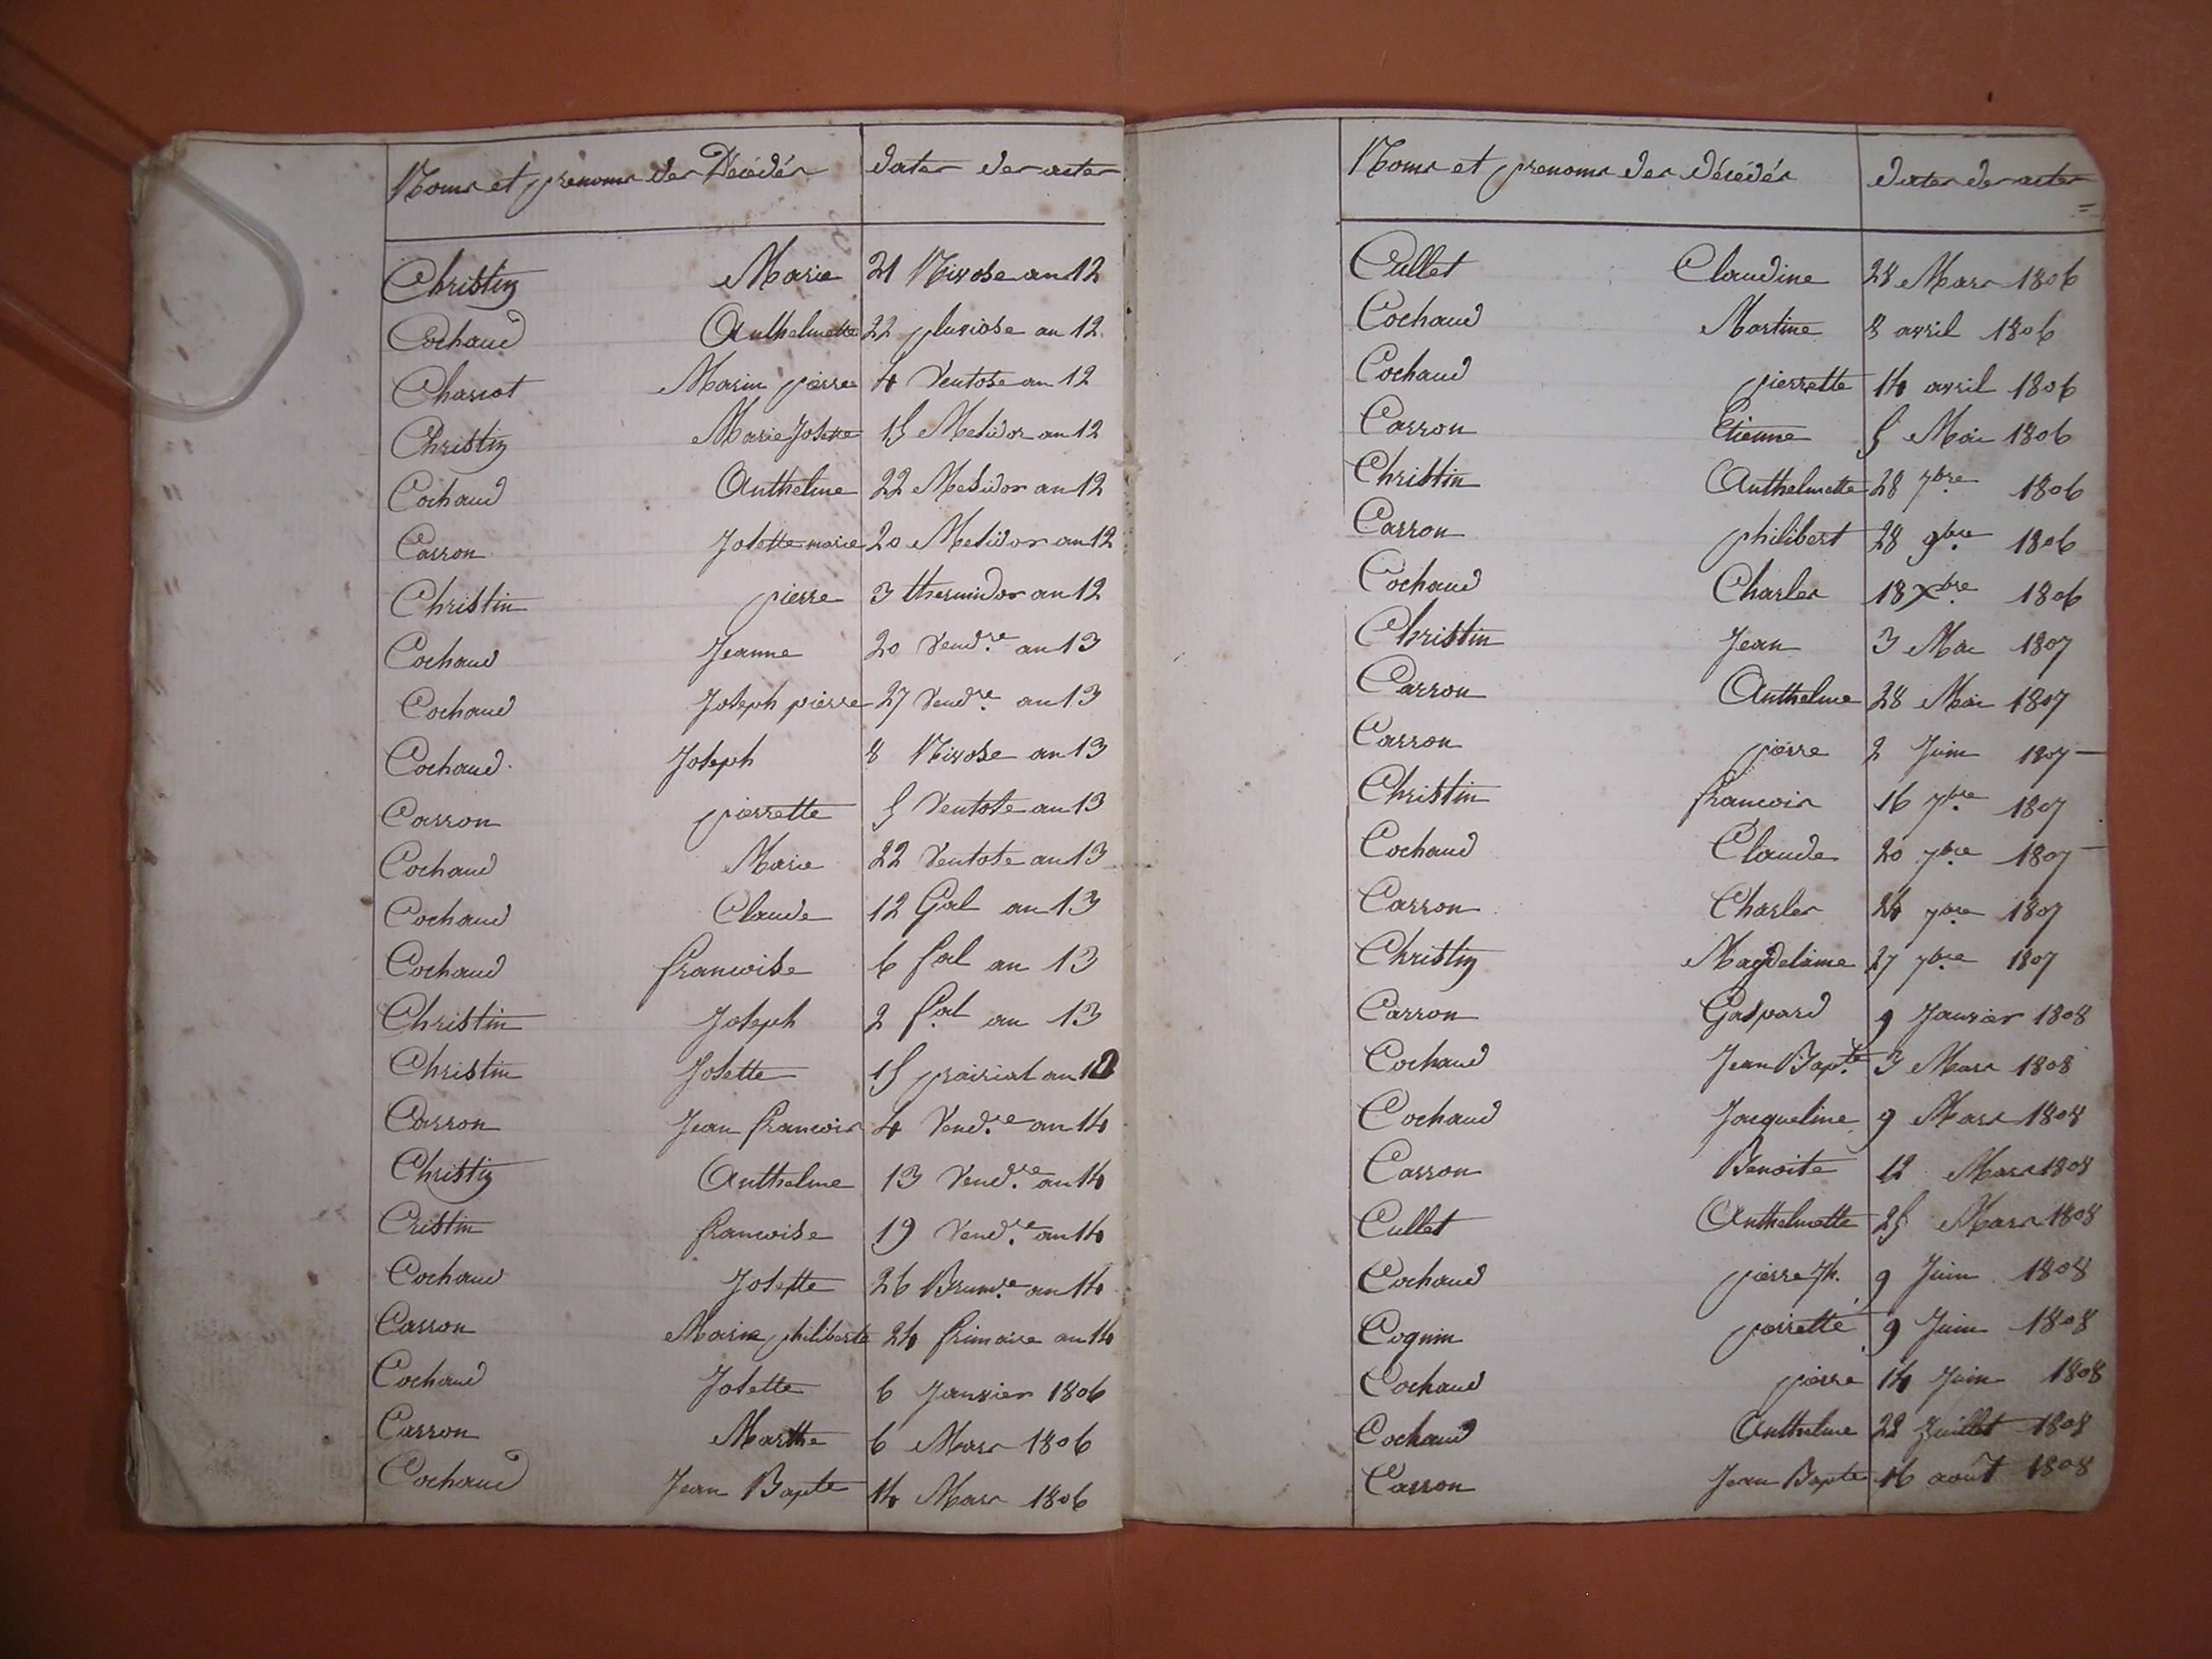 Noms et prenoms des Décédés dates des actes
Christin Marie 21 Nivose an 12
Cochaud Anthelmette 22 pluviose an 12
Charcot Marin pierre 4 Ventose an 12
Christin Marie Josette 15 Mesidor an 12
Cochaud Anthelme 22 Mesidor an 12
Carron Josette marie 20 Mesidor an 12
Christin pierre 3 thermidor an 12
Cochaud Jeanne 20 Vend.re an 13
Cochaud Joseph pierre 27 Vend.re an 13
Cochaud Joseph 8 Nivose an 13
Carron pierrette 5 Ventose an 13
Cochaud Marie 22 Ventose an 13
Cochaud Claude 12 Gal an 13
Cochaud francoise 6 fal an 13
Christin Joseph 2 f.al an 13
Christin Josette 15 prairial an
Carron Jean francois 4 Vend.re an 14
Christin Anthelme 13 Vend.re an 14
Cristin francoise 19 Vend.re an 14
Cochaud Josette 26 Brum.re an 14
Carron Marie philiberte 24 frimaire an 14
Cochaud Josette 6 Janvier 1806
Carron Marthe 6 Mars 1806
Cochaud Jean Bapte 14 Mars 1806
Noms et prenoms des décédés dates des actes
Cullet Claudine 28 Mars 1806
Cochaud Martine 8 avril 1806
Cochaud pierrette 14 avril 1806
Carron Etienne 5 Mai 1806
Christin Anthelmette 28 7bre 1806
Carron philibert 28 9bre 1806
Cochaud Charles 18 Xbre 1806
Christin Jean 3 Mai 1807
Carron Anthelme 28 Mai 1807
Carron pierre 2 Juin 1807
Christin francois 16 7bre 1807
Cochaud Claude 20 7bre 1807
Carron Charles 24 7bre 1807
Christin Magdelaine 27 7bre 1807
Carron Gaspard 9 Janvier 1808
Cochaud Jean Bap.te 3 Mars 1808
Cochaud Jacqueline 9 Mars 1808
Carron Benoite 12 Mars 1808
Cullet Anthelmette 25 Mars 1808
Cochaud pierre Jh. 9 Juin 1808
Cognin pierrette 9 Juin 1808
Cochaud pierre 14 Juin 1808
Cochaud Anthelme 28 Juillet 1808
Carron Jean Bapte 16 août 1808